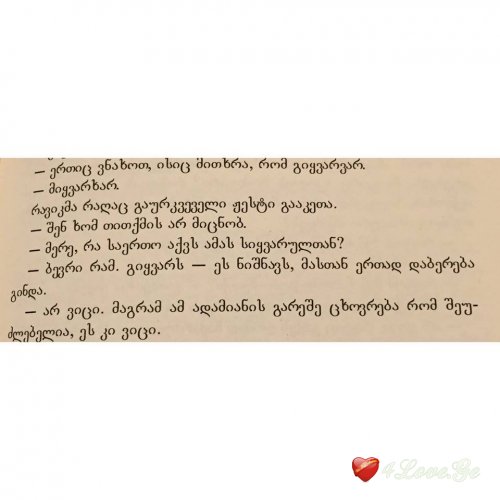 — ერთიც ვნახოთ, ისიც მითხრა, რომ გიყვარვარ.
— მიყვარხარ.
რავიკმა რაღაც გაურკვეველი ჟესტი გააკეთა.
— შენ ხომ თითქმის არ მიცნობ.
— მერე, რა საერთო აქვს ამას სიყვარულთან?
— ბევრი რამ. გიყვარს — ეს ნიშნავს, მასთან ერთად დაბერება
გინდა.
— არ ვიცი. მაგრამ ამ ადამიანის გარეშე ცხოვრება რომ შეუ-
ძლებელია, ეს კი ვიცი.
4Love.Ge